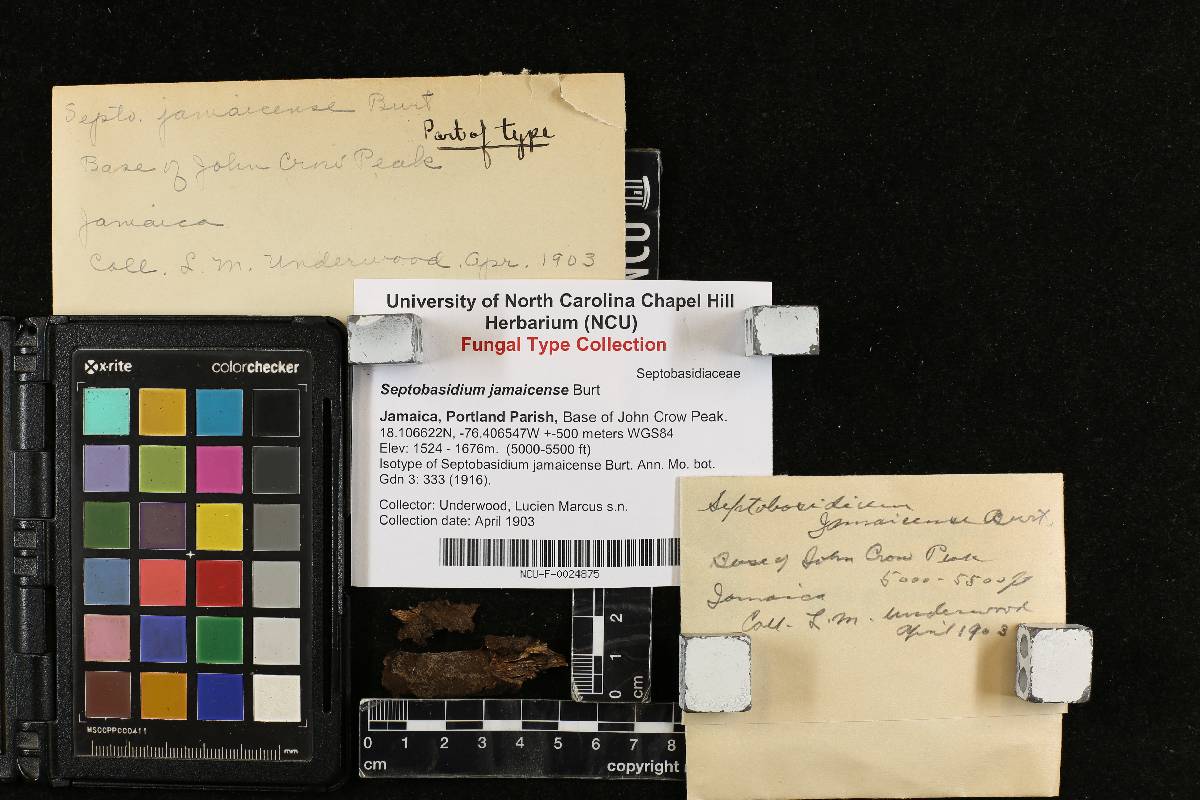 Septo. jamaicense Burt
Part of type
Base of John Crow Peak
Jamaica
Coll. L. M. Underwood. Apr. 1903
NCU
University of North Carolina Chapel Hill
Herbarium (NCU)
Fungal Type Collection
Septobasidiaceae
Septobasidium jamaicense Burt
Jamaica, Portland Parish, Base of John Crow Peak.
18.106622N, -76.406547W +-500 meters WGS84
Elev: 1524 - 1676m. (5000-5500 ft)
Isotype of Septobasidium jamaicense Burt. Ann. Mo. bot.
Gdn 3: 333 (1916).
Collector: Underwood, Lucien Marcus s.n.
Collection date: April 1903
NCU-F-0024875
x-rite colorchecker
MSCCPPCC0411
mm
Septobasidium
Jamaicense Burt
Base of John Crow Peak
5000-5500 ft
Jamaica
Coll. L. M. Underwood
April 1903
2
1
0
cm
0 1 2 3 4 5 6 7 8
cm
copyright